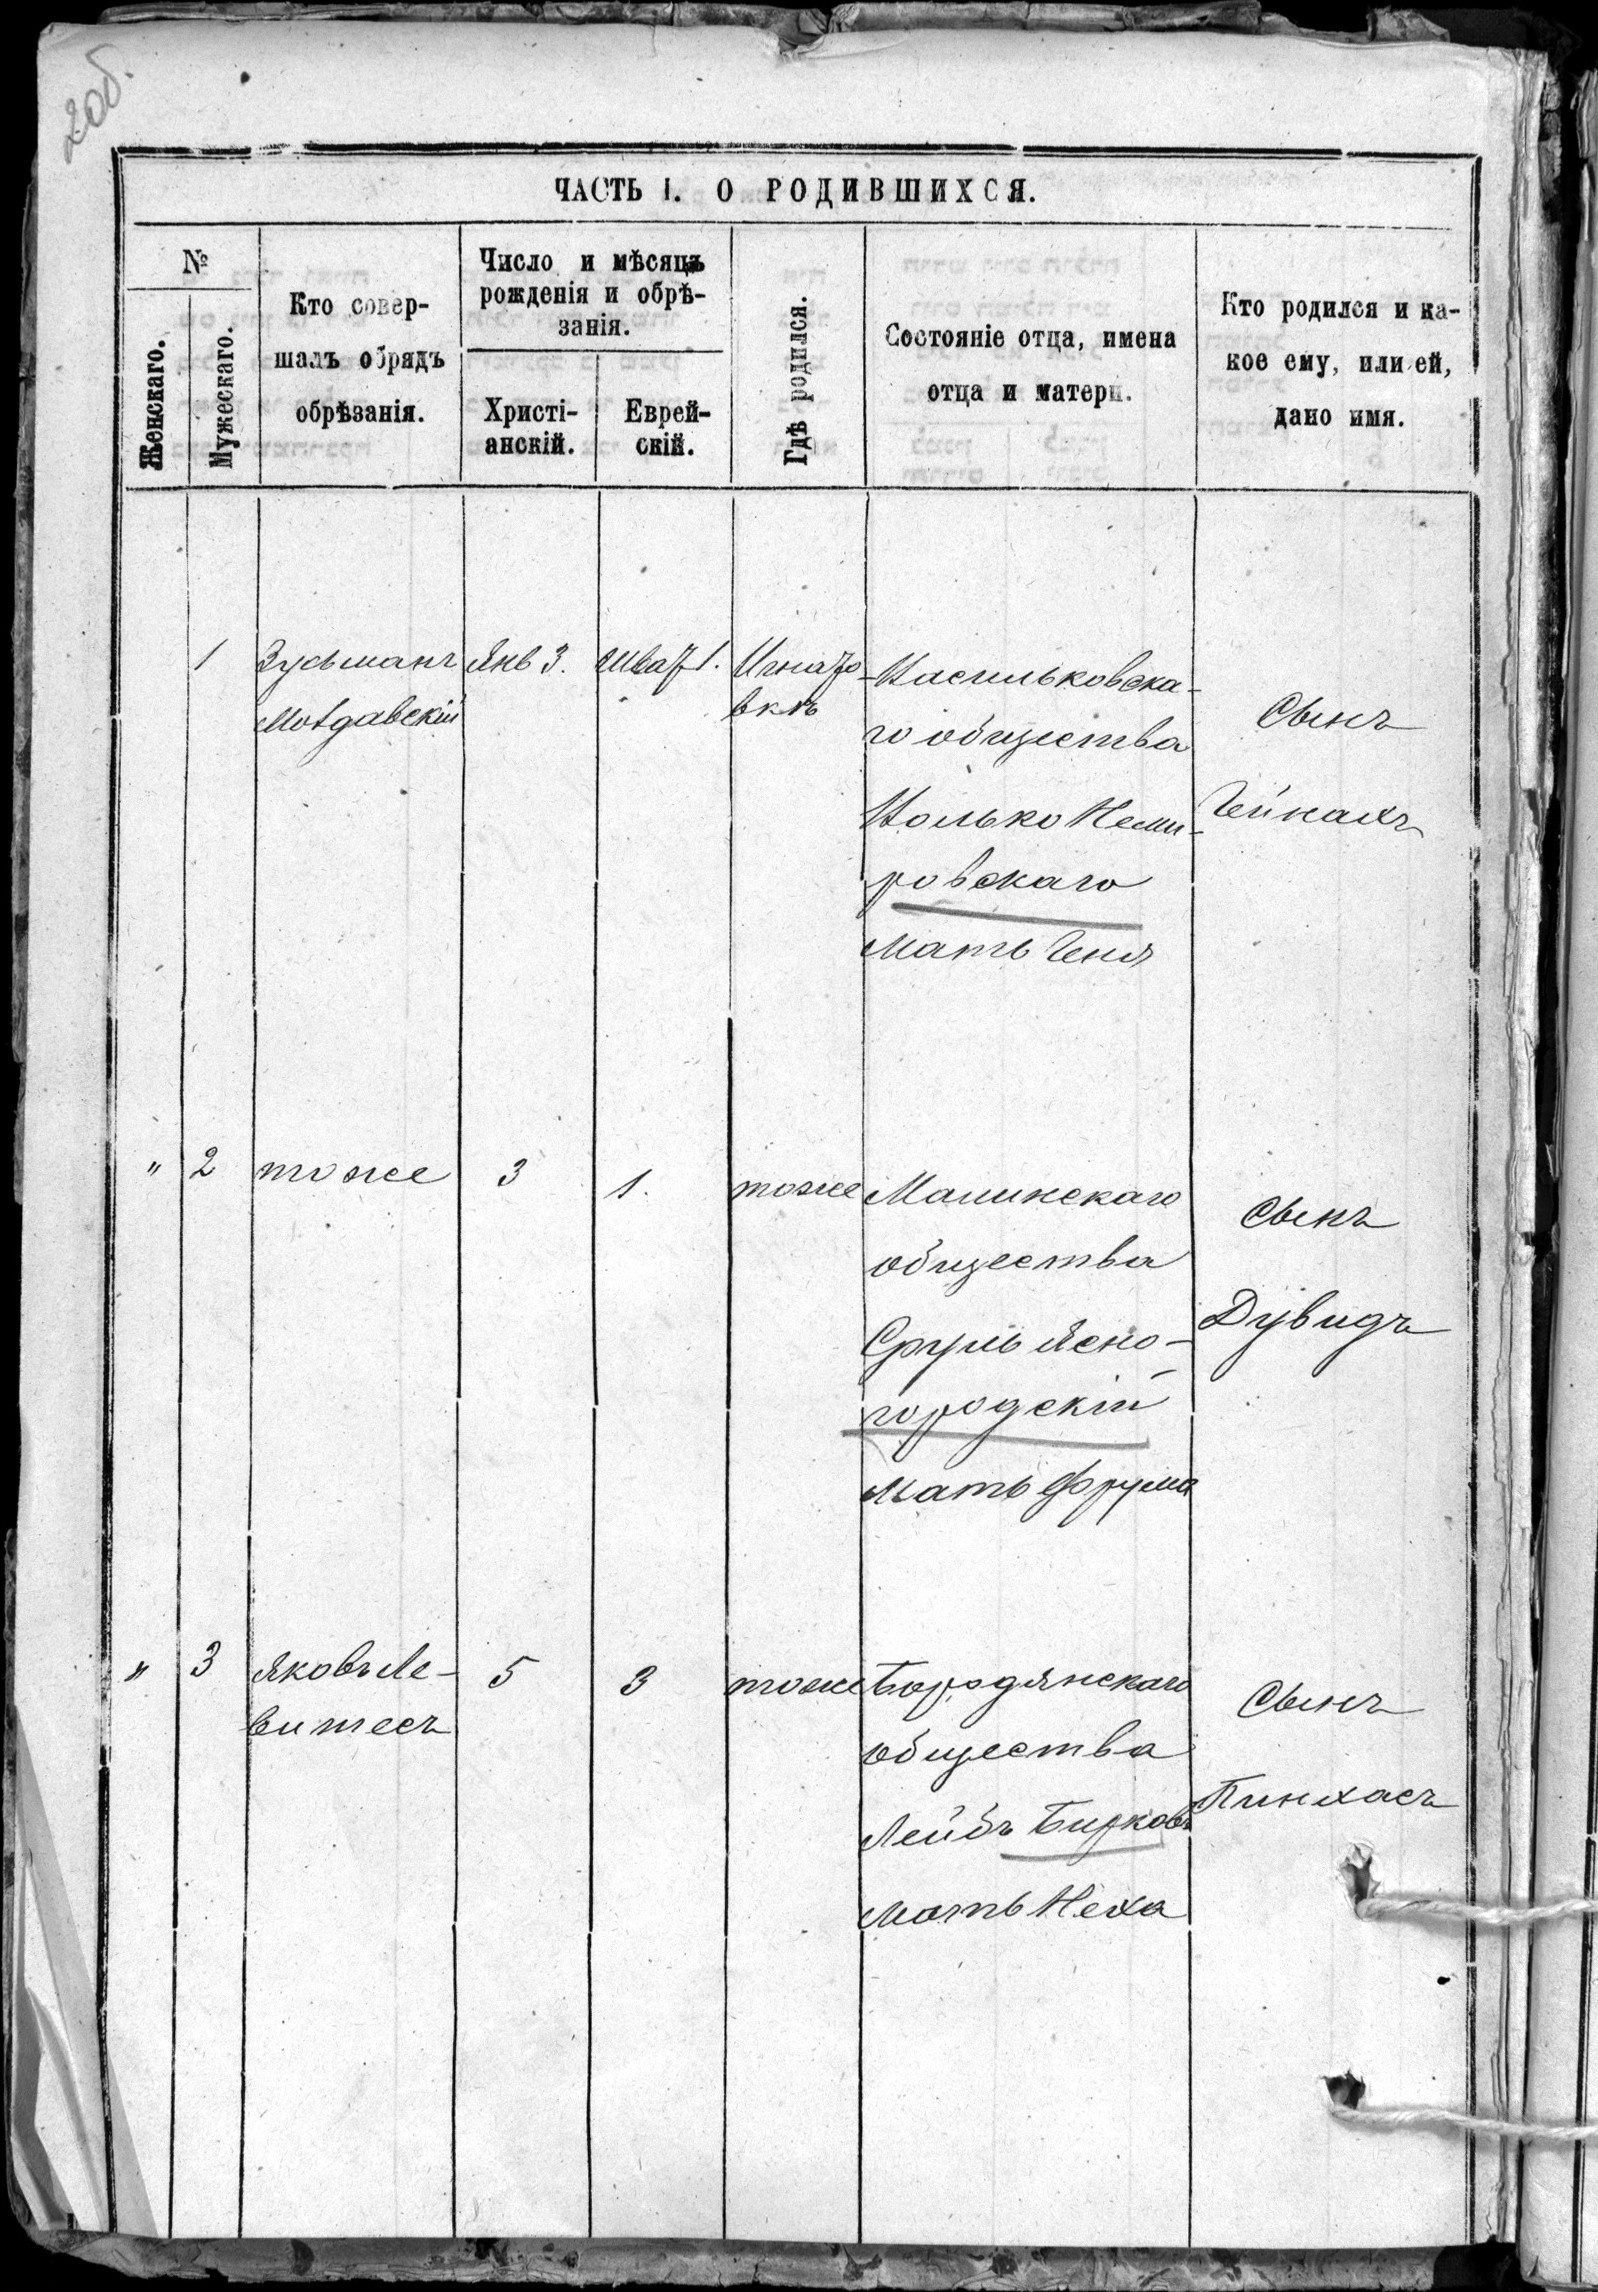 2об.
ЧАСТЬ I. О РОДИВШИХСЯ.
№
Женскаго.
Мужескаго.
Кто совер-
шалъ обрядъ
обрѣзанія.
Число и мѣсяцъ
рожденія и обрѣ-
занія.
Христі-
анскій.
Еврей-
скій.
Гдѣ родился.
Состояніе отца, имена
отца и матери.
Кто родился и ка-
кое ему, или ей,
дано имя.
1 Зусьманъ Янв 3. Шват 1. Игнато-
Молдавскій
вкѣ
Васильковска-
го общества
Неми-
ровскаго
Мать Геня
Сынъ
" 2 тоже 3 1. тоже
общества
Сруль Ясно-
городскій
Мать Фрума
Сынъ
Дувидъ
" 3 Яковъ Ле-
витесъ
5 3 тоже
Бородянскаго
общества
Лейбъ Бирковъ
Мать Неха
Сынъ
Пинхасъ